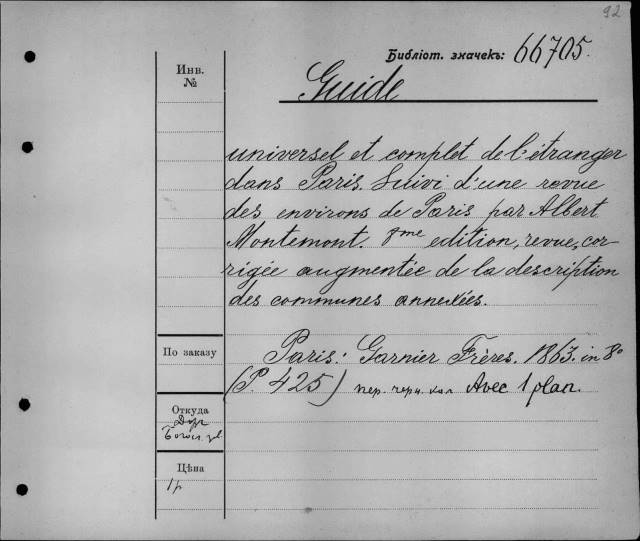 92
Библіот. значекъ: 66705.
Инв.
№
Guide
universel et complet de l'étranger
dans Paris. Suivi d'une revue
des environs de Paris par Albert
Montemont. 8me edition, revue, cor-
rigée augmentée de la description
des communes annexées.
По заказу
Paris: Garnier Frères. 1863. in 8°
(P. 425) пер. черн. кол Avec 1 plan.
Откуда
Цѣна
1 р